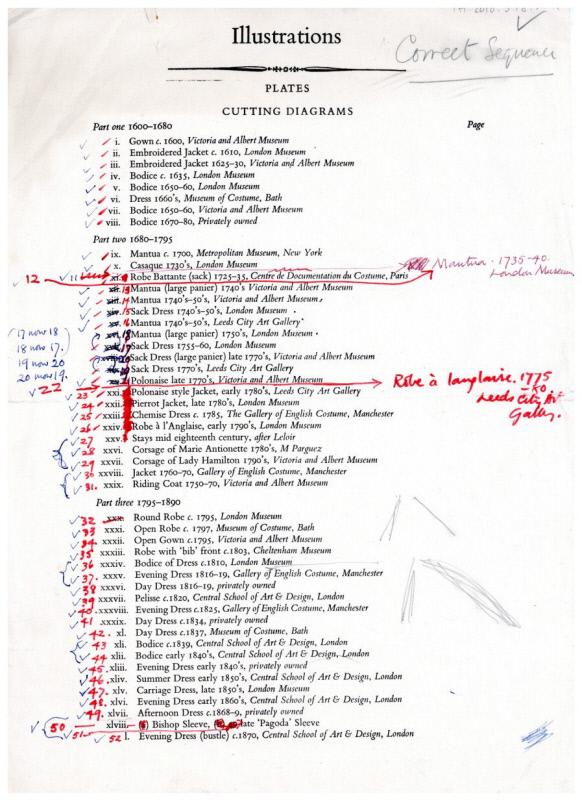 Illustrations
Correct Sequence
PLATES
CUTTING DIAGRAMS
Part one 1600–1680 Page
i. Gown c. 1600, Victoria and Albert Museum
ii. Embroidered Jacket c. 1610, London Museum
iii. Embroidered Jacket 1625-30, Victoria and Albert Museum
iv. Bodice c. 1635, London Museum
v. Bodice 1650–60, London Museum
vi. Dress 1660's, Museum of Costume, Bath
vii. Bodice 1650-60, Victoria and Albert Museum
viii. Bodice 1670-80, Privately owned
Part two 1680–1795
ix. Mantua c. 1700, Metropolitan Museum, New York
x. Casaque 1730's, London Museum Mantua. 1735-40. London Museum
12 11 Robe Battante (sack) 1725–35, Centre de Documentation du Costume, Paris
13 Mantua (large panier) 1740's Victoria and Albert Museum
14 Mantua 1740's-50's, Victoria and Albert Museum,
15 Sack Dress 1740's–50's, London Museum
16 Mantua 1740's-50's, Leeds City Art Gallery
17 now 18 Mantua (large panier) 1750's, London Museum
18 now 17. Sack Dress 1755–60, London Museum
19 now 20 Sack Dress (large panier) late 1770's, Victoria and Albert Museum
20 now 19. Sack Dress 1770's, Leeds City Art Gallery
22 21 Polonaise late 1770's, Victoria and Albert Museum Robe à langlaise. 1775-80 Leeds City Art Gallery.
23 xxi. Polonaise style Jacket, early 1780's, Leeds City Art Gallery
24 xxii. Pierrot Jacket, late 1780's, London Museum
25 xxiii. Chemise Dress c. 1785, The Gallery of English Costume, Manchester
26 xxiv. Robe à l'Anglaise, early 1790's, London Museum
27 xxv. Stays mid eighteenth century, after Leloir
28 xxvi. Corsage of Marie Antionette 1780's, M Parguez
29 xxvii. Corsage of Lady Hamilton 1790's, Victoria and Albert Museum
30 xxviii. Jacket 1760-70, Gallery of English Costume, Manchester
31. xxix. Riding Coat 1750-70, Victoria and Albert Museum
Part three 1795–1890
32 xxx. Round Robe c. 1795, London Museum
33 xxxi. Open Robe c. 1797, Museum of Costume, Bath
34 xxxii. Open Gown c.1795, Victoria and Albert Museum
35 xxxiii. Robe with 'bib' front c.1803, Cheltenham Museum
36 xxxiv. Bodice of Dress c.1810, London Museum
37. xxxv. Evening Dress 1816-19, Gallery of English Costume, Manchester
38 xxxvi. Day Dress 1816–19, privately owned
39 xxxvii. Pelisse c.1820, Central School of Art & Design, London
40. xxxviii. Evening Dress c.1825, Gallery of English Costume, Manchester
41 xxxix. Day Dress c.1834, privately owned
42. xl. Day Dress c.1837, Museum of Costume, Bath
43 xli. Bodice c.1839, Central School of Art & Design, London
44 xlii. Bodice early 1840's, Central School of Art & Design, London
45. xliii. Evening Dress early 1840's, privately owned
46. xliv. Summer Dress early 1850's, Central School of Art & Design, London
47. xlv. Carriage Dress, late 1850's, London Museum
48. xlvi. Evening Dress early 1860's, Central School of Art & Design, London
49. xlvii. Afternoon Dress c.1868–9, privately owned
50 xlviii. Bishop Sleeve, late 'Pagoda' Sleeve
51 52 l. Evening Dress (bustle) c.1870, Central School of Art & Design, London